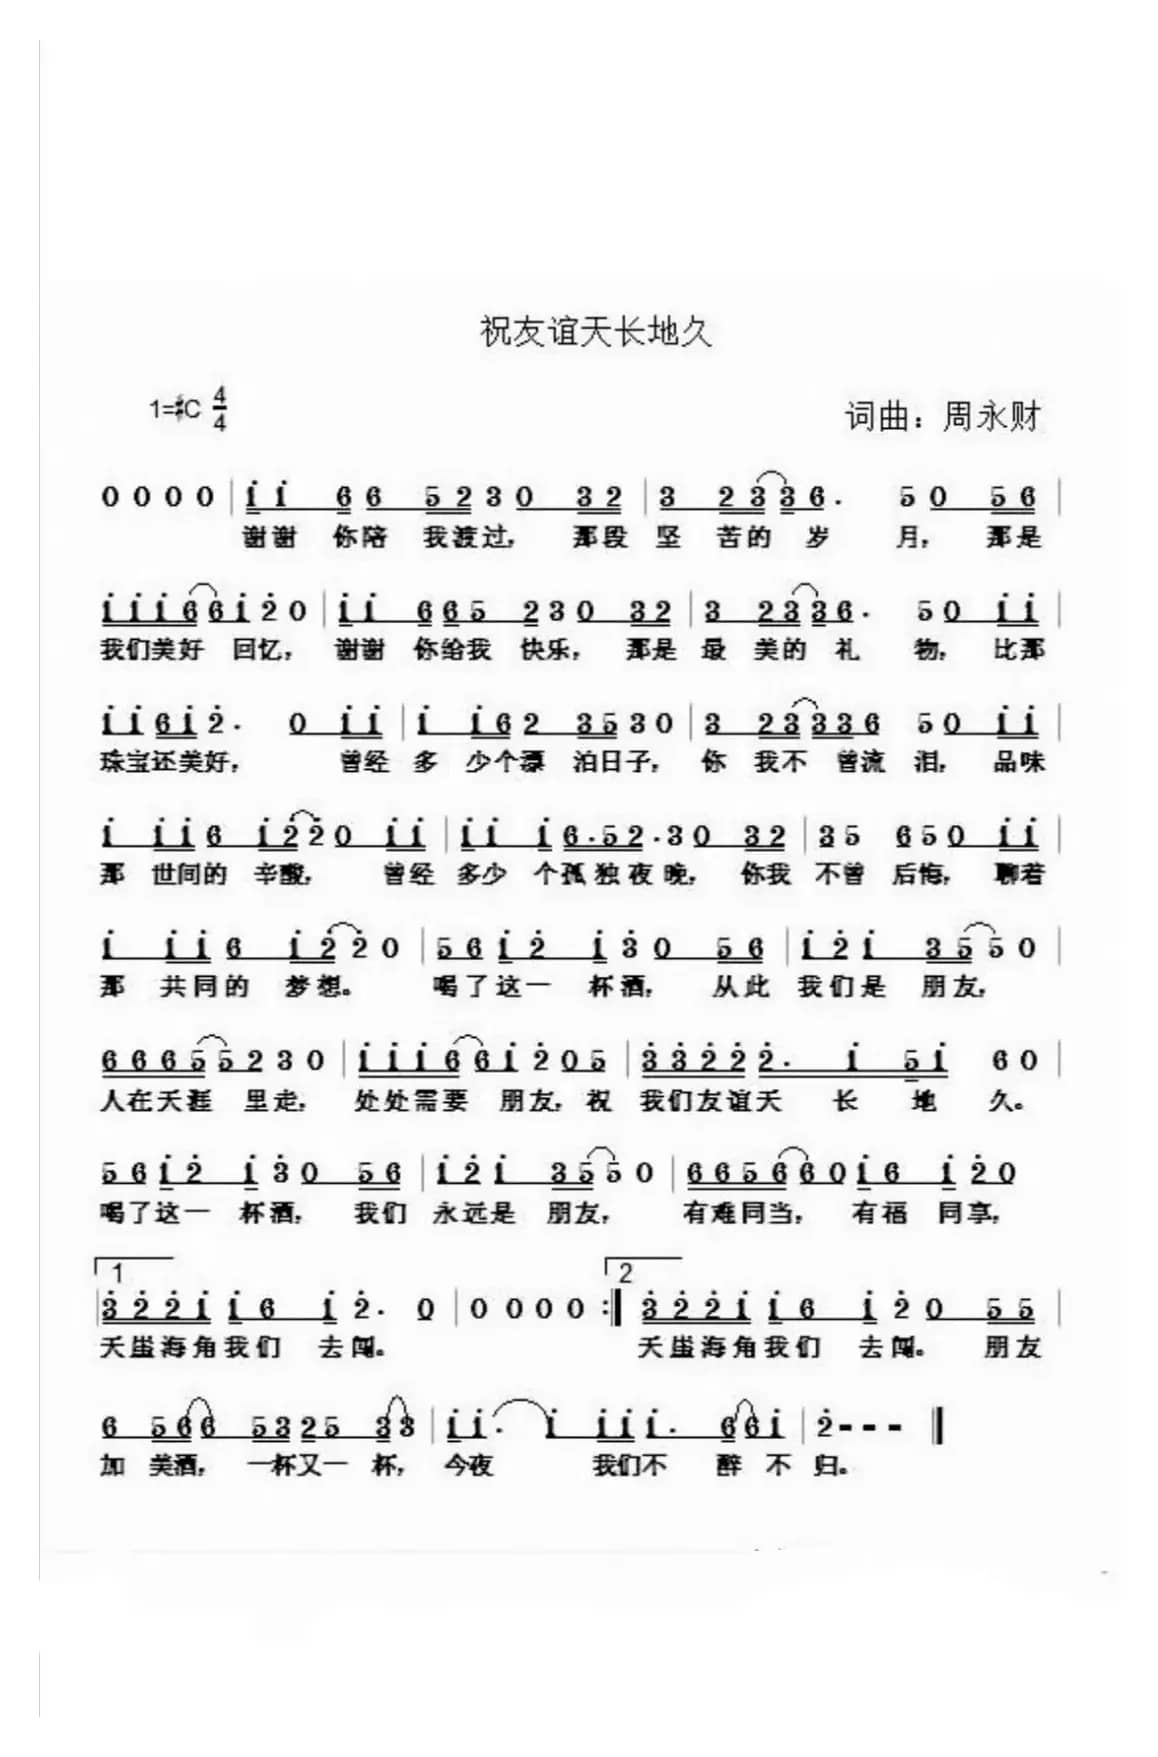 祝友谊天长地久
1=#C 4/4
词曲：周永财
0 0 0 0 | i i 6 6 5 2 3 0 3 2 | 3 2 3 3 6 . 5 0 5 6 |
谢谢 你陪 我渡过， 那段 坚 苦的 岁 月， 那是
i i i 6 6 i 2 0 | i i 6 6 5 2 3 0 3 2 | 3 2 3 3 6 . 5 0 i i |
我们美好 回忆， 谢谢 你给我 快乐， 那是 最 美的 礼 物， 比那
i i 6 i 2 . 0 i i | i i 6 2 3 5 3 0 | 3 2 3 3 3 6 5 0 i i |
珠宝还美好， 曾经 多 少个漂 泊日子， 你 我不 曾流 泪， 品味
i i i 6 i 2 2 0 i i | i i i 6 . 5 2 . 3 0 3 2 | 3 5 6 5 0 i i |
那 世间的 辛酸， 曾经 多少 个孤独夜晚， 你我 不曾 后悔， 聊着
i i i 6 i 2 2 0 | 5 6 i 2 i 3 0 5 6 | i 2 i 3 5 5 0 |
那 共同的 梦想。 喝了这一 杯酒， 从此 我们是 朋友，
6 6 6 5 5 2 3 0 | i i i 6 6 i 2 0 5 | 3 3 2 2 2 . i 5 i 6 0 |
人在天涯 里走， 处处需要 朋友，祝 我们友谊天 长 地 久。
5 6 i 2 i 3 0 5 6 | i 2 i 3 5 5 0 | 6 6 5 6 6 0 i 6 i 2 0
喝了这一 杯酒， 我们 永远是 朋友， 有难同当， 有福 同享，
1 2
| 3 2 2 i i 6 i 2 . 0 | 0 0 0 0 :| 3 2 2 i i 6 i 2 0 5 5 |
天蚩海角我们 去闯。 天蚩海角我们 去闯。 朋友
6 5 6 6 5 3 2 5 3 3 | i i . i i i i . 6 6 i | 2 - - - ||
加 美酒， 一杯又一 杯， 今夜 我们不 醉 不 归。